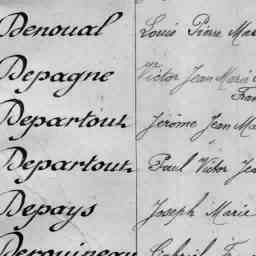 Denoual Louis Pierre Ma
Depagne Victor Jean Marie
Fran
Departout Jérôme Jean Ma
Departout Paul Victor Je
Depays Joseph Marie
Derquineau Gabriel F